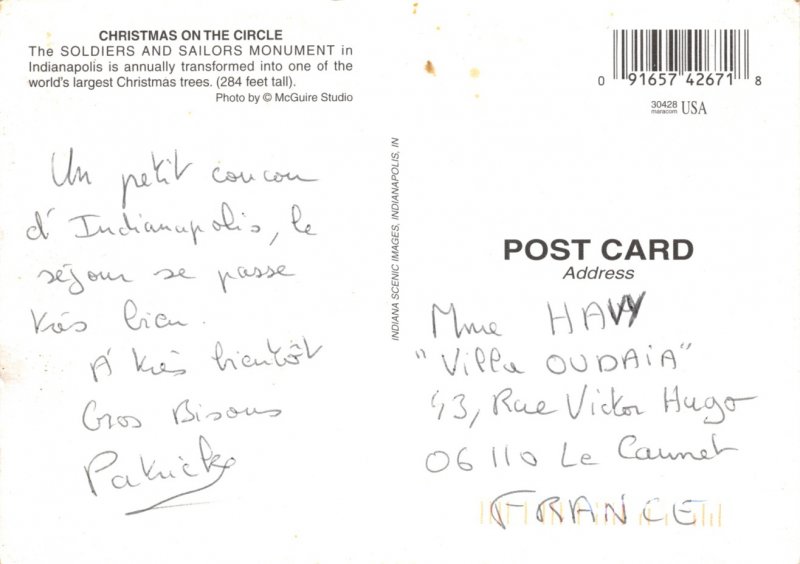 CHRISTMAS ON THE CIRCLE
The SOLDIERS AND SAILORS MONUMENT in
Indianapolis is annually transformed into one of the
world's largest Christmas trees. (284 feet tall).
Photo by © McGuire Studio
0 91657 42671 8
30428 USA
maracom
INDIANA SCENIC IMAGES, INDIANAPOLIS, IN
Un petit coucou
d'Indianapolis, le
séjour se passe
très bien.
A très bientôt
Gros Bisous
Patrick
POST CARD
Address
Mme HAVY
"Villa OUDAIA"
43, Rue Victor Hugo
06110 Le Cannet
FRANCE